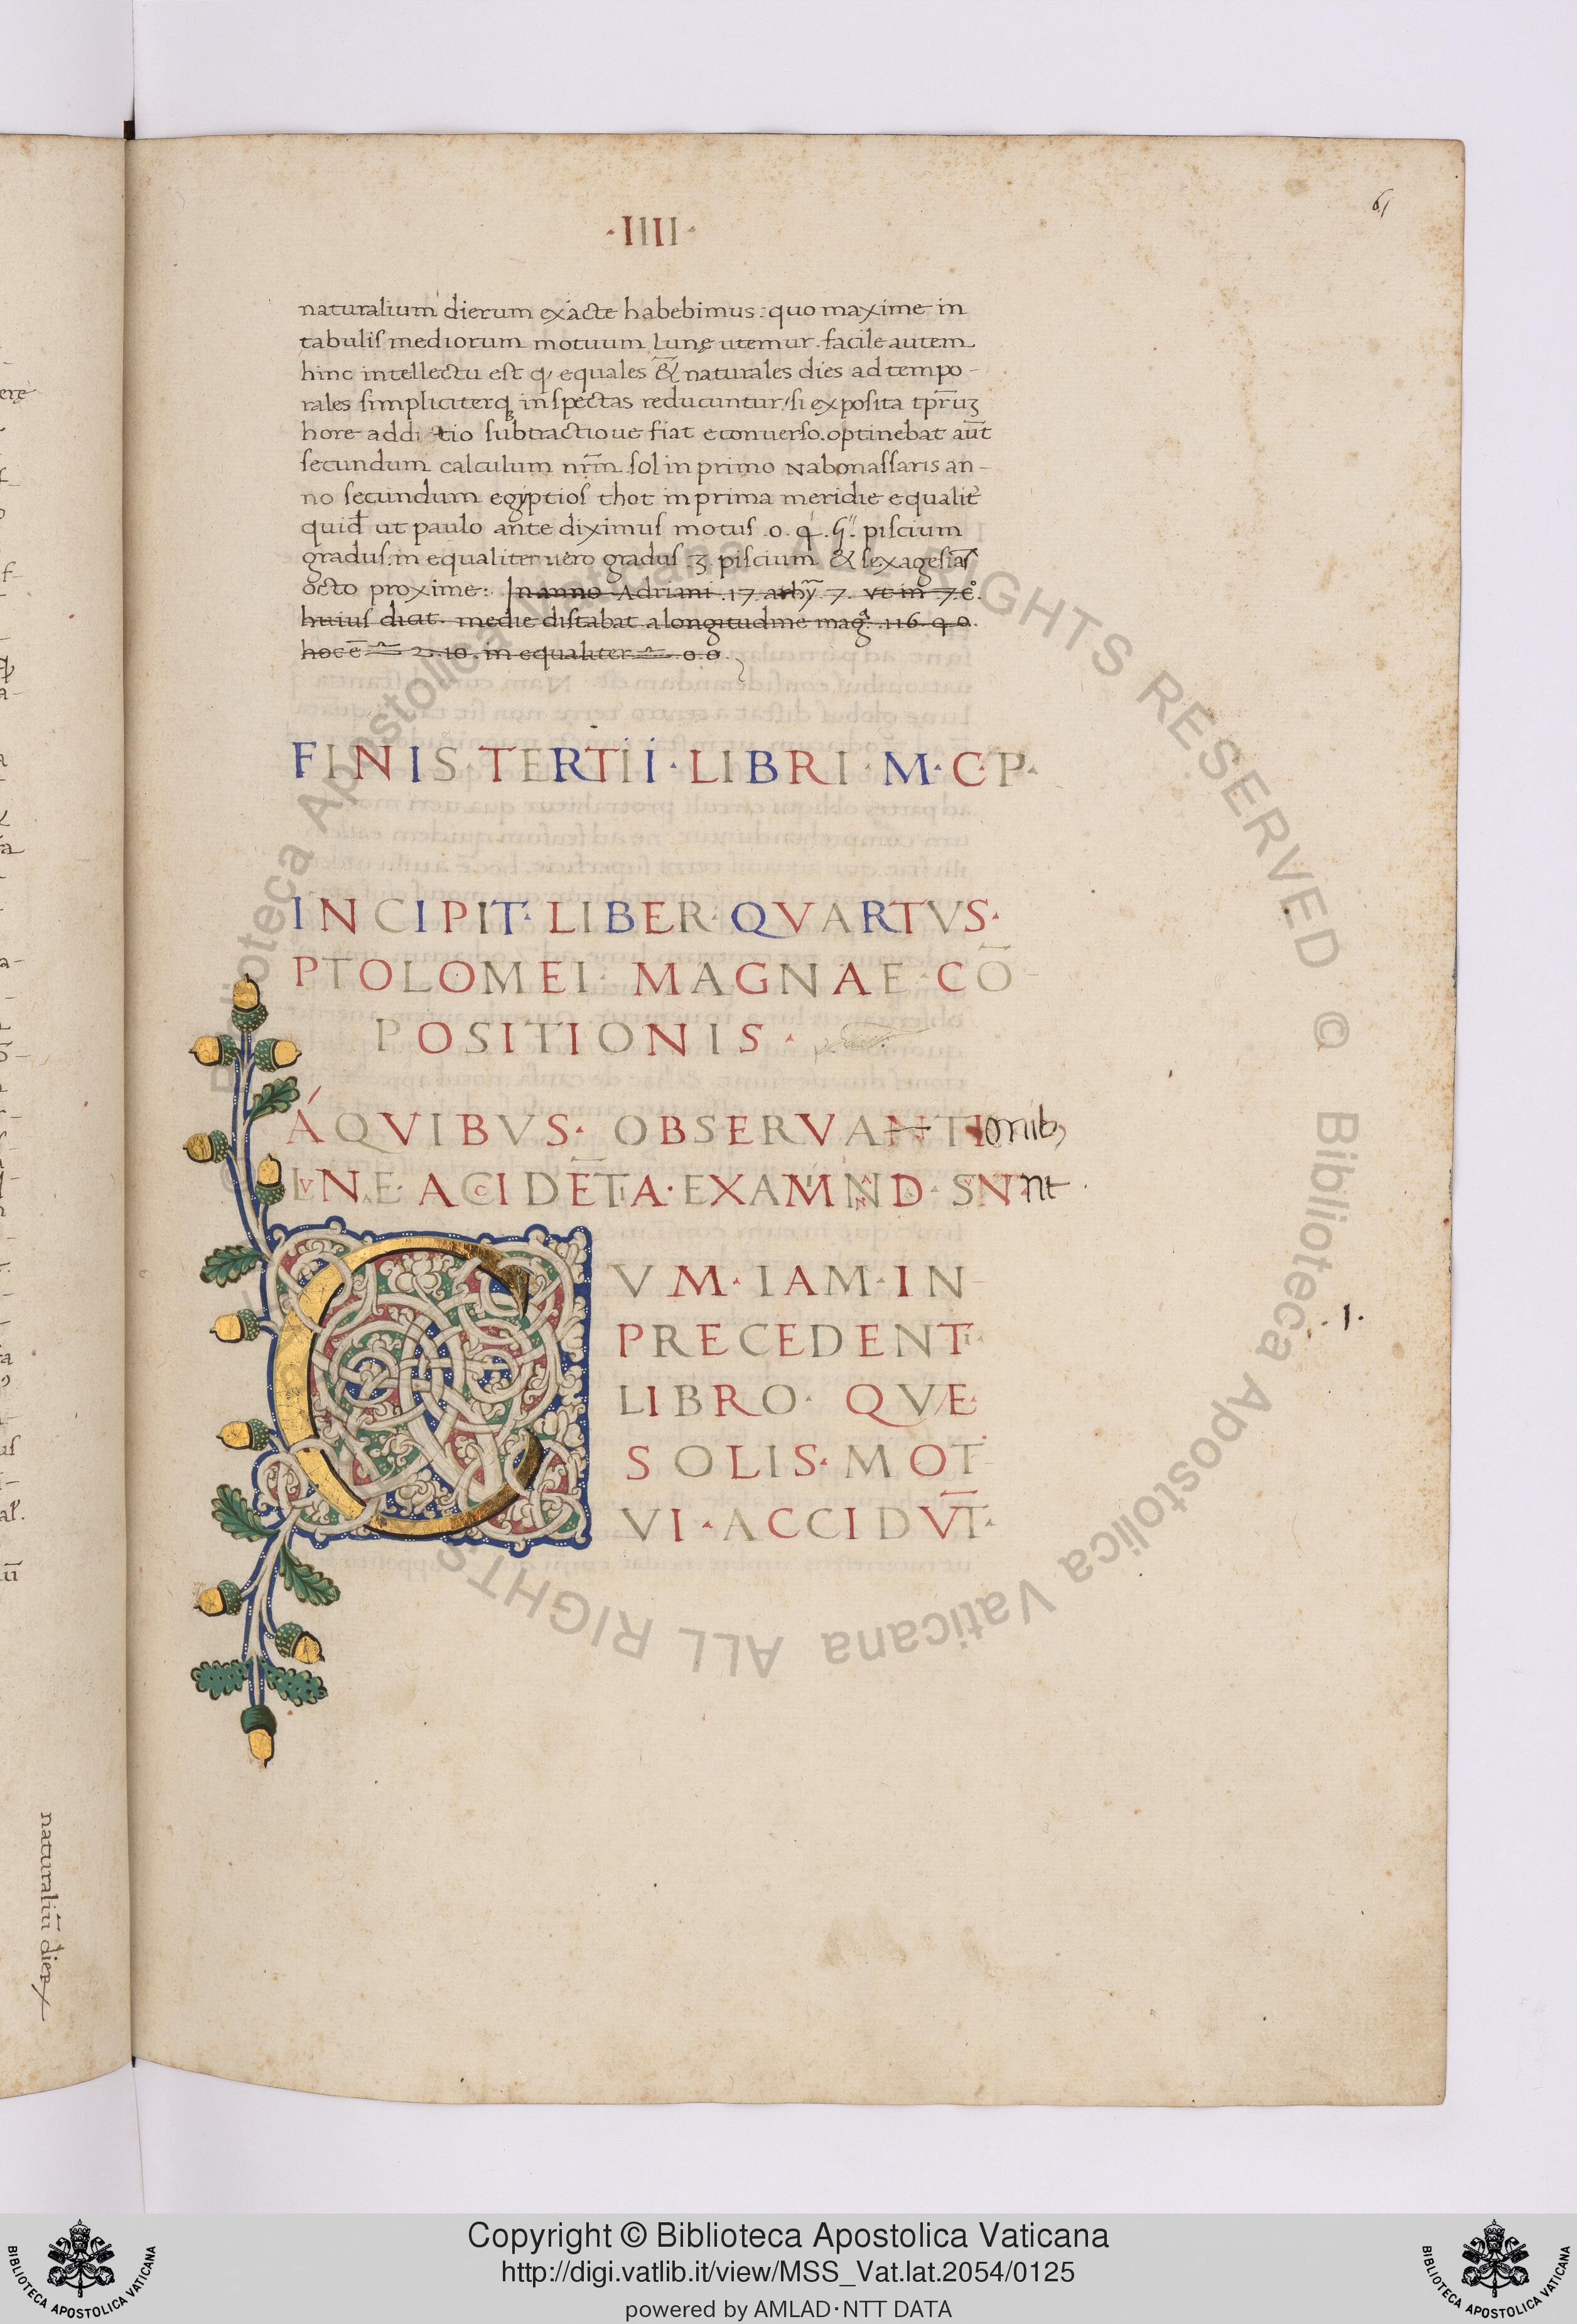 ·IIII·
61
naturalium dierum exacte habebimus: quo maxime in
tabulis mediorum motuum Lunę utemur. facile autem
hinc intellectu est equales & naturales dies ad tempo-
rales simpliciterq inspectas reducuntur, si exposita
hore additio subtractioue fiat econuerso. optinebat aut̄
secundum calculum nr̄m sol in primo Nabonassaris an-
no secundum egiptios thot in prima meridie equalit̉
quid̄ ut paulo ante diximus motus .o. piscium
gradus. in equaliter uero gradus .3. piscium &
octo proxime: In anno Adriani .17. 7. ut in 7.
huius dicat. medie distabat a longitudine 116. 40.
hoc ē 2.10. in equaliter 0.0.
FINIS·TERTII·LIBRI·M·C·P·
INCIPIT·LIBER·QVARTVS·
PTOLOMEI·MAGNAE·CŌ-
POSITIONIS·
A QVIBVS· OBSERVANTIonib,
LVNE·ACCIDĒTIA·EXAMINAND·SNnt.
CVM·IAM·IN-
PRECEDENTI·
LIBRO·QVE·
SOLIS·MOT-
VI·ACCIDV̄T·
.1.
naturaliū dierꝝ
Biblioteca Apostolica Vaticana ALL RIGHTS RESERVED © Biblioteca Apostolica Vaticana ALL RIGHTS
BIBLIOTECA APOSTOLICA VATICANA
Copyright © Biblioteca Apostolica Vaticana
http://digi.vatlib.it/view/MSS_Vat.lat.2054/0125
powered by AMLAD·NTT DATA
BIBLIOTECA APOSTOLICA VATICANA